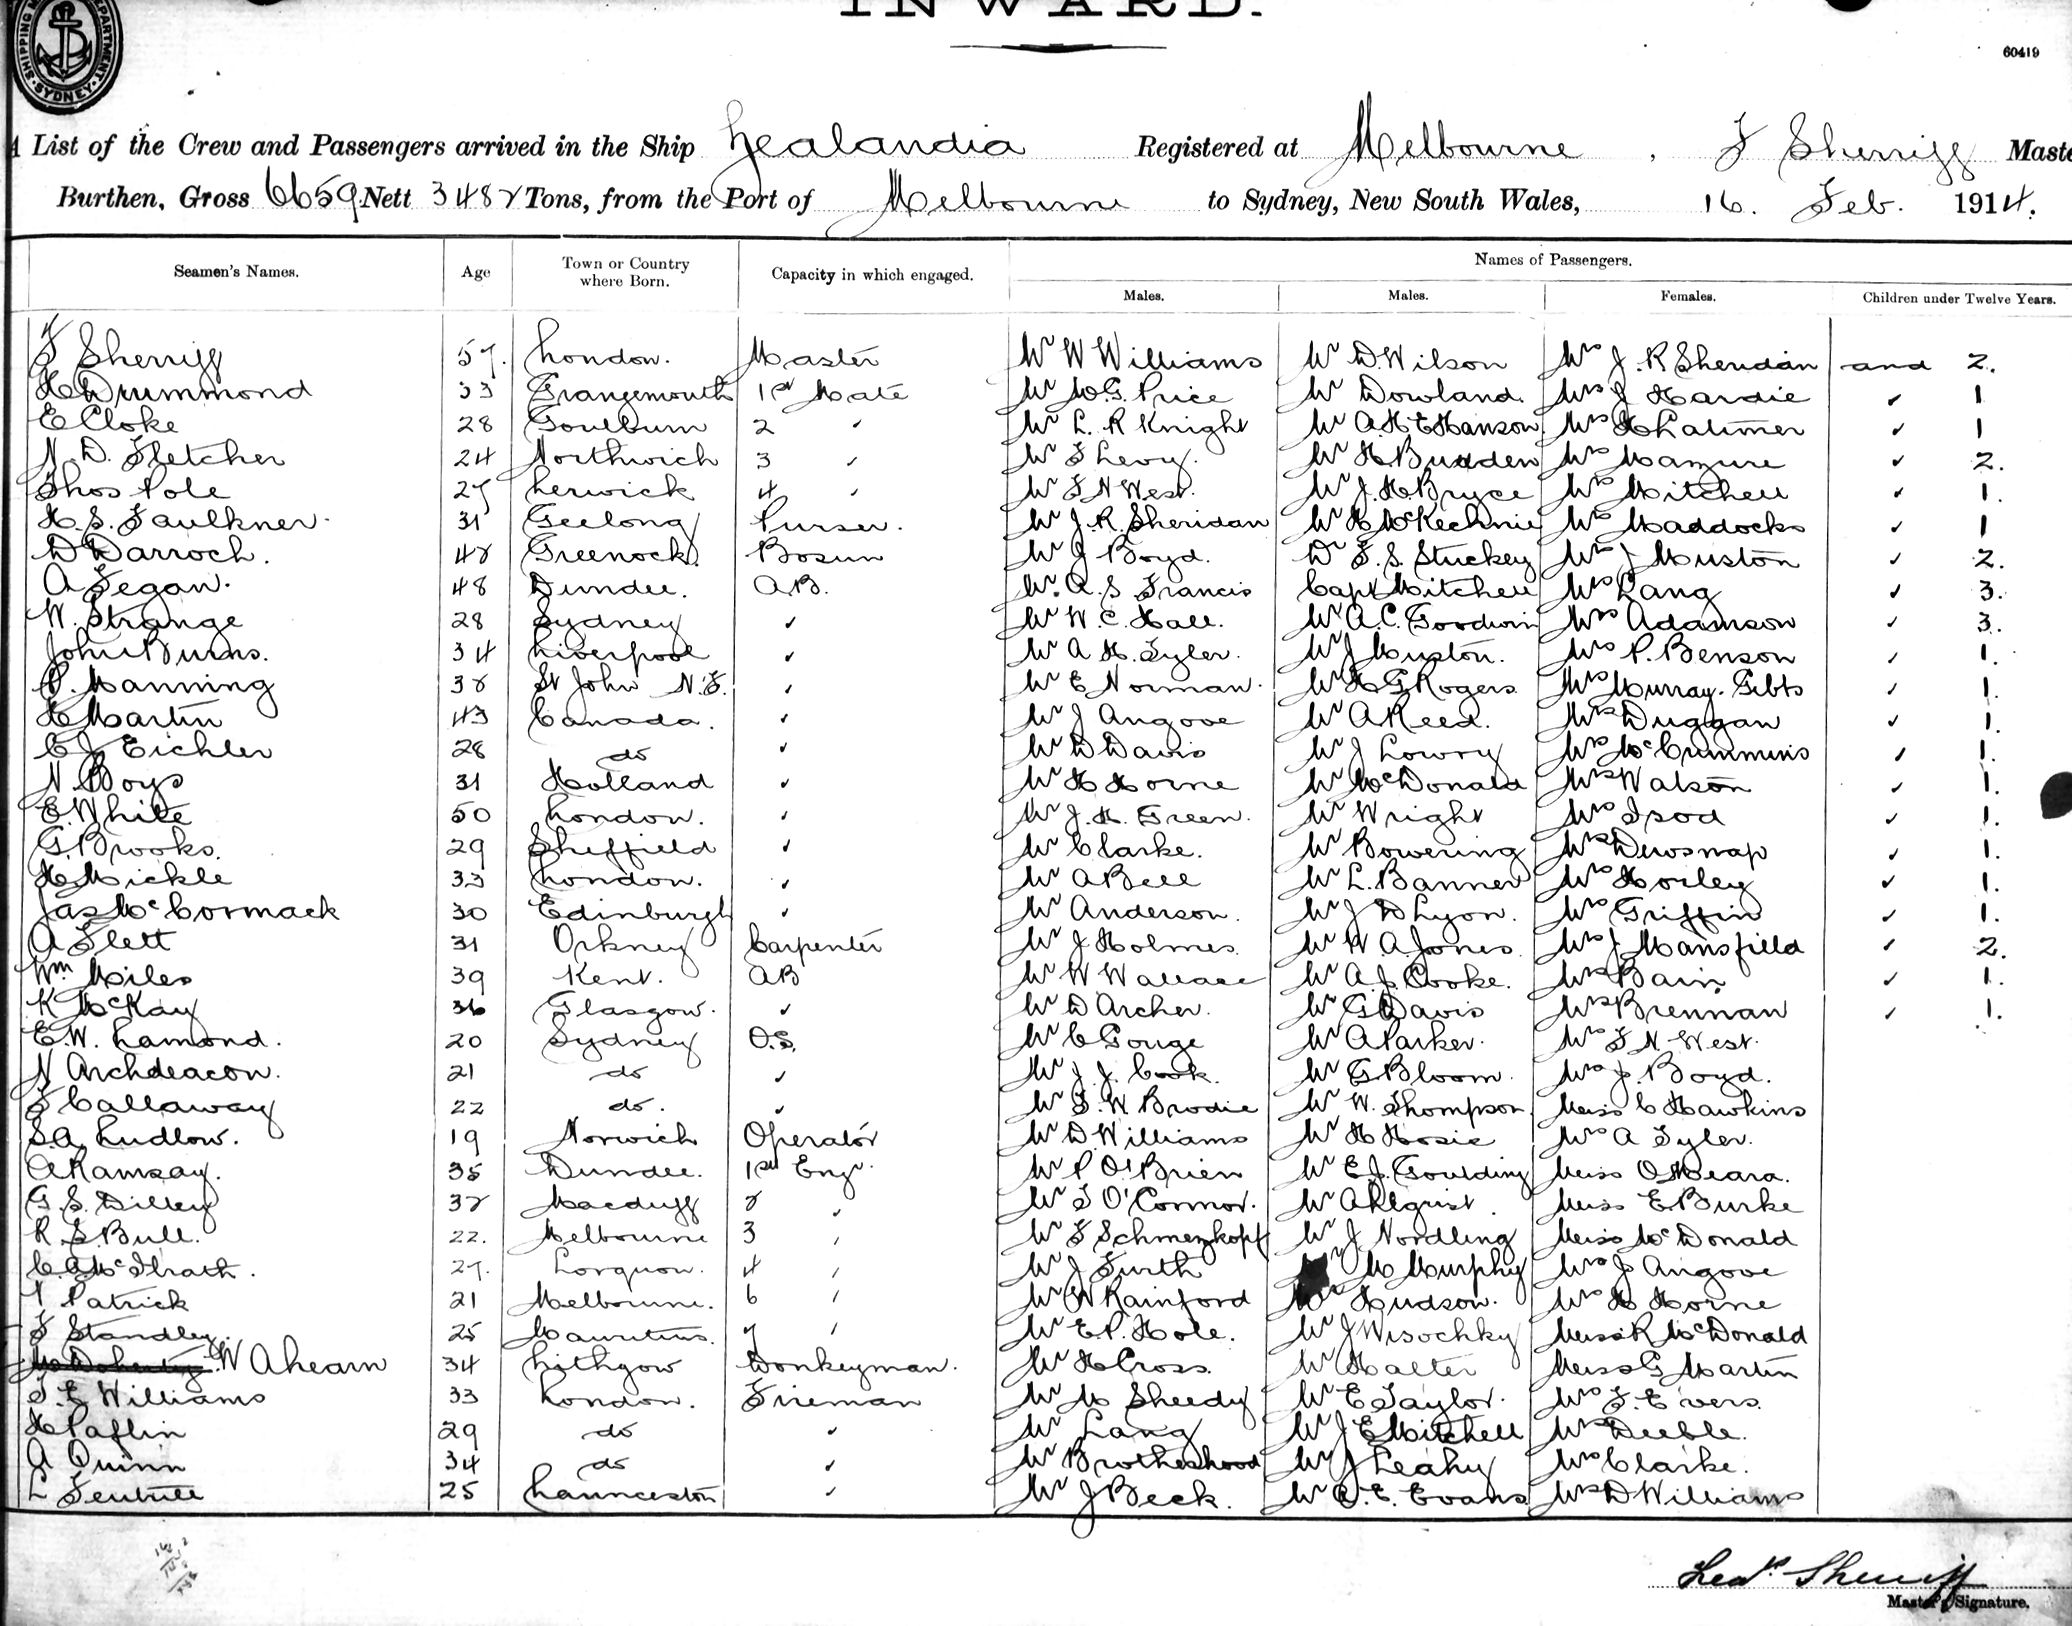 INWARD.
SHIPPING DEPARTMENT SYDNEY
60419
A List of the Crew and Passengers arrived in the Ship Zealandia Registered at Melbourne, F Sherriff Maste
Burthen, Gross 6659 Nett 3482 Tons, from the Port of Melbourne to Sydney, New South Wales, 16. Feb. 1914.
Seamen's Names. Age Town or Country where Born. Capacity in which engaged. Names of Passengers.
Males. Males. Females. Children under Twelve Years.
F Sherriff 57. London. Master Mr W Williams Mr D. Wilson Mrs J. R Sheridan and 2.
H Drummond 33 Grangemouth 1st Mate Mr W.G. Price Mr Dowland. Mrs J Hardie ✓ 1
E Cloke 28 Goulburn 2 ✓ Mr L. R Knight Mr A. H. E Hanson Mrs H Latimer ✓ 1
N. D. Fletcher 24 Northwich 3 ✓ Mr F Levy. Mr H. Budden Mrs Manzure ✓ 2.
Thos Pole 27 Lerwick 4 ✓ Mr F N West. Mr J. H Bryce Mrs Mitchell ✓ 1.
H. S. Faulkner. 31 Geelong Purser. Mr J. R. Sheridan Mr H McKechnie Mrs Maddocks ✓ 1
D Darroch. 42 Greenock. Bosun Mr J Boyd. Dr F. S. Stuckey Mrs J Muston ✓ 2.
A Fegan. 48 Dundee. A.B. Mr. A. S Francis Capt Mitchell Mrs Lang ✓ 3.
W. Strange 28 Sydney ✓ Mr W. C. Hall. Mr A. C. Goodwin Mrs Adamson ✓ 3.
John Burns. 34 Liverpool ✓ Mr A H. Tyler. Mr J Muston. Mrs P. Benson ✓ 1.
P. Manning 32 St John N.F. ✓ Mr E Norman. Mr H G Rogers Mrs Murray. Gibbs ✓ 1.
H Martin 43 Canada. ✓ Mr J Angove Mr A Reed. Mrs Duggan ✓ 1.
C J Eichler 28 do ✓ Mr D Davis Mr J Lowry Mrs McCummins ✓ 1.
N. Boys 31 Holland ✓ Mr H Horne Mr McDonald Mrs Watson ✓ 1.
E. White 50 London. ✓ Mr J. H. Green. Mr Wright Mrs Isod ✓ 1.
G. Brooks. 29 Sheffield ✓ Mr Clarke. Mr Bowering Mrs Dewsnap ✓ 1.
H Mickle 33 London. ✓ Mr A Bell Mr L. Banner Mrs Horley ✓ 1.
Jas McCormack 30 Edinburgh ✓ Mr Anderson. Mr J D Lyon. Mrs Griffin ✓ 1.
A Flett 31 Orkney Carpenter Mr J Holmes. Mr W. A. Jones Mrs J Mansfield ✓ 2.
Wm Miles 39 Kent. AB Mr W Wallace Mr A. J. Cooke. Mrs Bain ✓ 1.
K McKay 36 Glasgow. ✓ Mr D Archer. Mr G Davis Mrs Brennan ✓ 1.
E. W. Lamond. 20 Sydney O.S. Mr C Gouge Mr A Parker. Mrs F N. West.
N Archdeacon. 21 do ✓ Mr J. J. Cook. Mr G Bloom. Mrs J. Boyd.
F Callaway 22 do. ✓ Mr F. W. Brodie Mr W. Thompson. Miss C Hawkins
S. A. Ludlow. 19 Norwich Operator Mr D. Williams Mr H Hosie Mrs A Tyler.
A Ramsay. 35 Dundee. 1st Engr. Mr P. O'Brien Mr E. J. Goulding Miss O'Meara.
G. S. Dilley 32 Macduff 2 ✓ Mr T O'Connor. Mr Ahlquist. Miss E. Burke
R. S. Bull. 22. Melbourne 3 ✓ Mr F Schmenkopf Mr J Nordling Miss McDonald
C. A McIlrath. 27. Lorquon. 4 ✓ Mr J Furth M Murphy Mrs J Angove
T Patrick 21 Melbourne. 6 ✓ Mr W Rainford Mr Hudson. Mrs H Horne
F Standley. 25 Mauritius. 7 ✓ Mr E. P. Hole. Mr J Wisochky Miss R McDonald
M Doherty W Ahearn 34 Lithgow Donkeyman. Mr H Cross. Mr Halter Miss G Martin
T. E Williams 33 London. Fireman Mr M Sheedy Mr E Taylor. Mrs F. Evers.
H Paflin 29 do ✓ Mr Lang Mr J E Mitchell Mrs Deeble.
A Quinn 34 do ✓ Mr Brotherhood Mr J Leahy Mrs Clarke.
L 25 Launceston ✓ Mr J Beck. Mr C. E. Evans Mrs D Williams
Sherriff
Master's Signature.